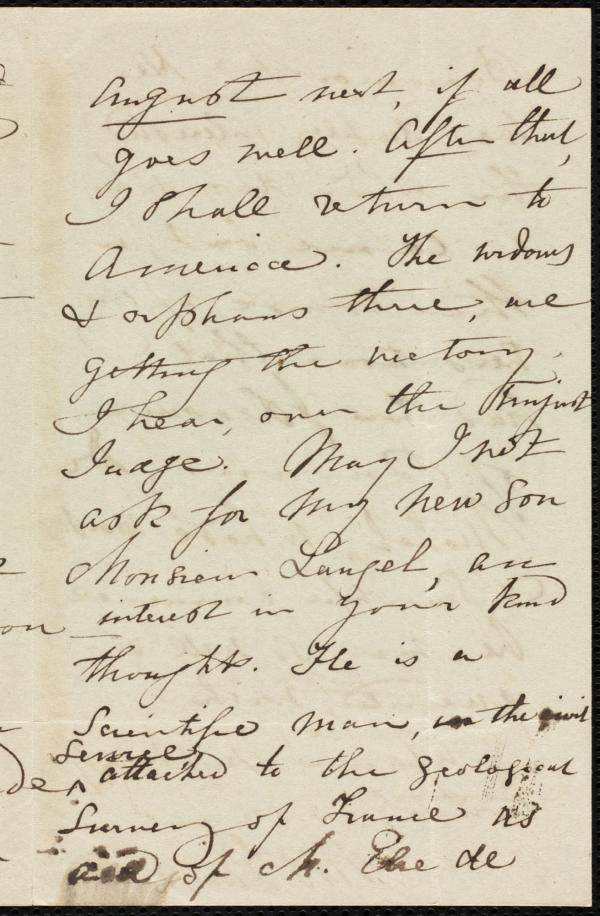 August next, if all
goes well. After that,
I shall return to
America. The widows
& orphans there, are
getting the victory,
I hear, over the Unjust
Judge. May I not
ask for my new son
Monsieur Laugel, an
interest in your kind
thoughts. He is a
Scientific man, in the civil
Service,
attached to the geological
Survey of France as
aid of M. Elie de